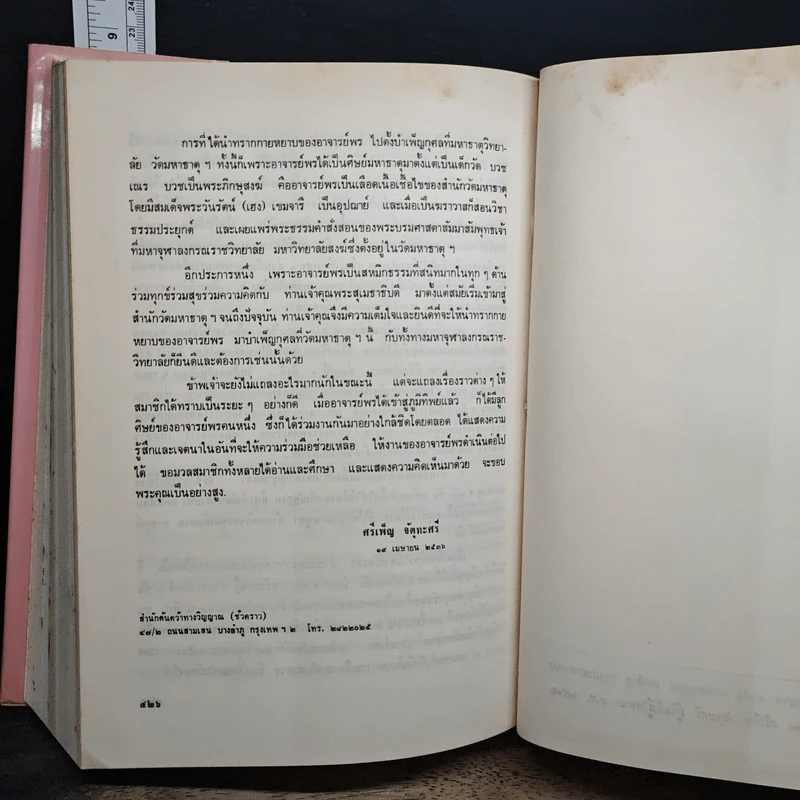 9
23
24
การที่ได้นำทรากกายหยาบของอาจารย์พร ไปตั้งบำเพ็ญกุศลที่มหาธาตุวิทยา-
ลัย วัดมหาธาตุ ฯ ทั้งนี้ก็เพราะอาจารย์พรได้เป็นศิษย์มหาธาตุมาตั้งแต่เป็นเด็กวัด บวช
เณร บวชเป็นพระภิกษุสงฆ์ คืออาจารย์พรเป็นเลือดเนื้อเชื้อไขของสำนักวัดมหาธาตุ
โดยมีสมเด็จพระวันรัตน์ (เฮง) เขมจารี เป็นอุปฌาย์ และเมื่อเป็นฆราวาสก็สอนวิชา
ธรรมประยุกต์ และเผยแพร่พระธรรมคำสั่งสอนของพระบรมศาสดาสัมมาสัมพุทธเจ้า
ที่มหาจุฬาลงกรณราชวิทยาลัย มหาวิทยาลัยสงฆ์ซึ่งตั้งอยู่ในวัดมหาธาตุ ฯ
อีกประการหนึ่ง เพราะอาจารย์พรเป็นสหมิกธรรมที่สนิทมากในทุก ๆ ด้าน
ร่วมทุกข์ร่วมสุขร่วมความคิดกับ ท่านเจ้าคุณพระสุเมธาธิบดี มาตั้งแต่สมัยเริ่มเข้ามาสู่
สำนักวัดมหาธาตุ ฯ จนถึงปัจจุบัน ท่านเจ้าคุณจึงมีความเต็มใจและยินดีที่จะให้นำทรากกาย
หยาบของอาจารย์พร มาบำเพ็ญกุศลที่วัดมหาธาตุ ฯ นี้ กับทั้งทางมหาจุฬาลงกรณราช-
วิทยาลัยก็ยินดีและต้องการเช่นนั้นด้วย
ข้าพเจ้าจะยังไม่แถลงอะไรมากนักในขณะนี้ แต่จะแถลงเรื่องราวต่าง ๆ ให้
สมาชิกได้ทราบเป็นระยะ ๆ อย่างก็ดี เมื่ออาจารย์พรได้เข้าสู่ภูมิทิพย์แล้ว ก็ได้มีลูก
ศิษย์ของอาจารย์พรคนหนึ่ง ซึ่งก็ได้ร่วมงานกันมาอย่างใกล้ชิดโดยตลอด ได้แสดงความ
รู้สึกและเจตนาในอันที่จะให้ความร่วมมือช่วยเหลือ ให้งานของอาจารย์พรดำเนินต่อไป
ได้ ขอมวลสมาชิกทั้งหลายได้อ่านและศึกษา และแสดงความคิดเห็นมาด้วย จะขอบ
พระคุณเป็นอย่างสูง.
ศรีเพ็ญ จัตุทะศรี
๑๙ เมษายน ๒๕๓๖
สำนักค้นคว้าทางวิญญาณ (ชั่วคราว)
๔๗/๒ ถนนสามเสน บางลำภู กรุงเทพ ฯ ๒ โทร. ๒๘๒๒๐๒๕
๔๒๖